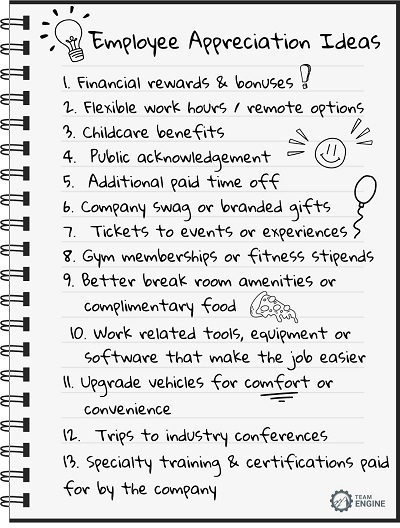 Employee Appreciation Ideas
1. Financial rewards & bonuses
2. Flexible work hours / remote options
3. Childcare benefits
4. Public acknowledgement
5. Additional paid time off
6. Company swag or branded gifts
7. Tickets to events or experiences
8. Gym memberships or fitness stipends
9. Better break room amenities or
complimentary food
10. Work related tools, equipment or
software that make the job easier
11. Upgrade vehicles for comfort or
convenience
12. Trips to industry conferences
13. Specialty training & certifications paid
for by the company
TEAM
ENGINE